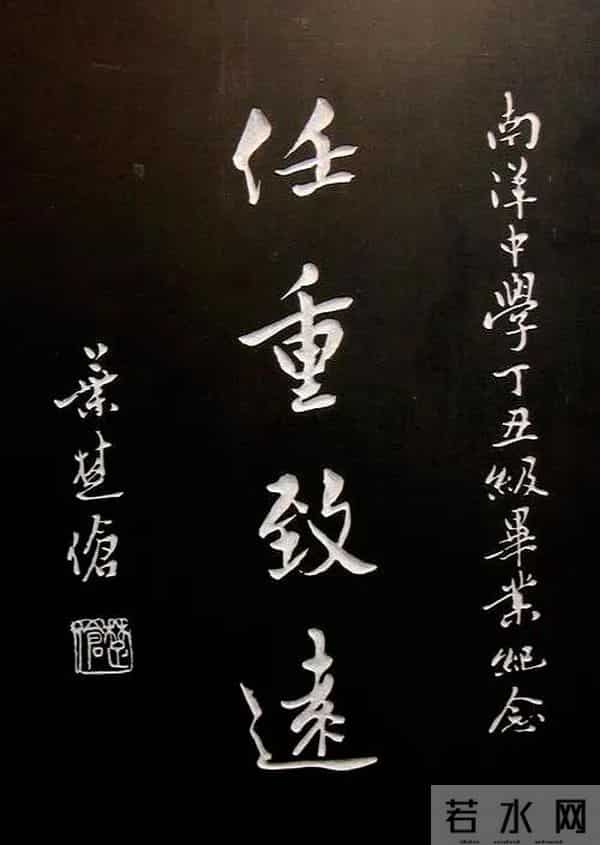 南洋中學丁丑級畢業紀念
任重致遠
葉楚傖
楚傖
若水网